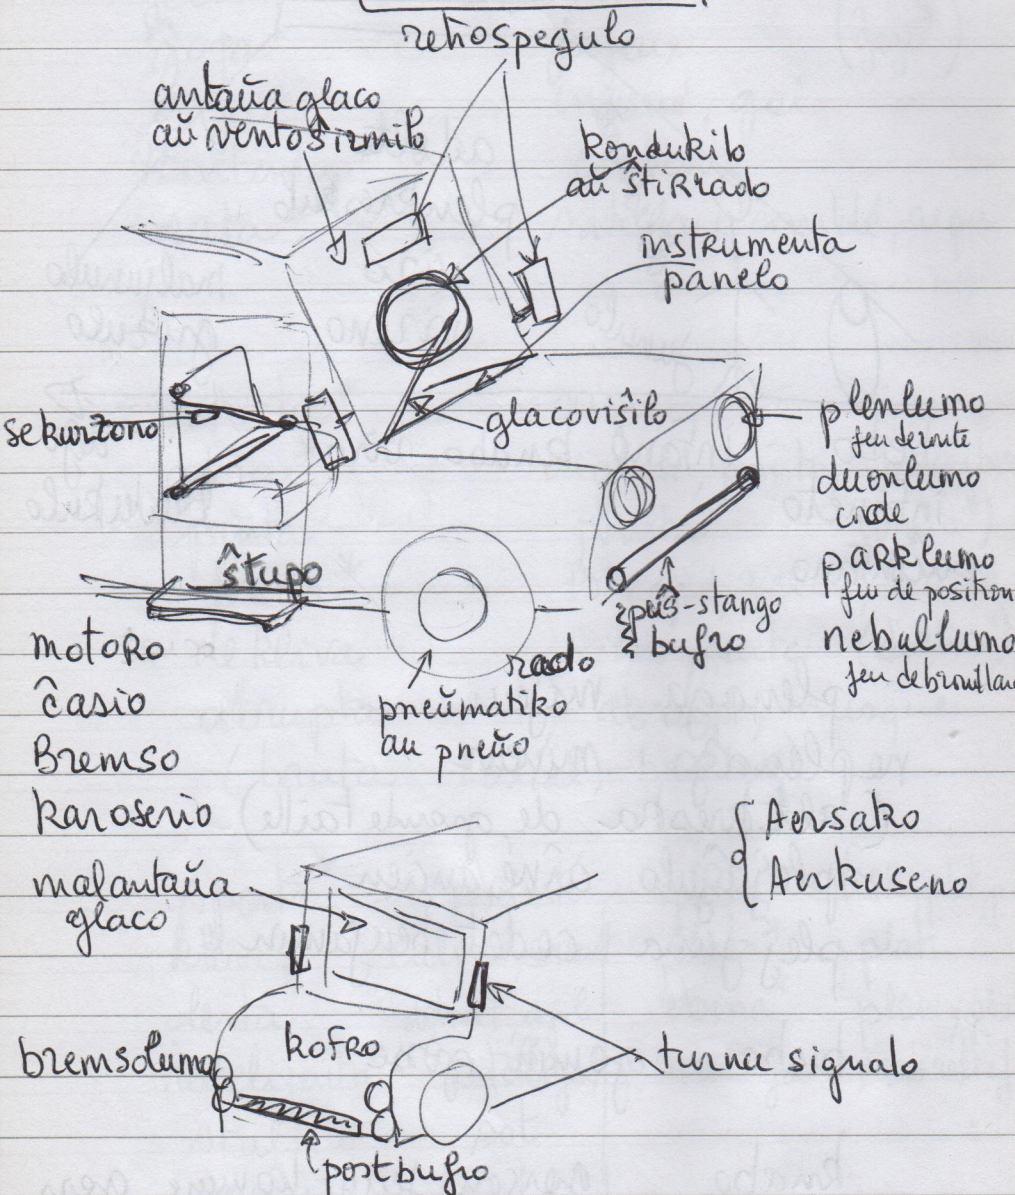 retrospegulo
antaŭa glaco
aŭ ventoŝirmilo
kondukilo
aŭ ŝtirrado
instrumenta
panelo
sekurzono
glacoviŝilo
plenlumo
feu de route
duonlumo
code
parklumo
feu de position
nebullumo
feu de brouillard
ŝtupo
puŝ-stango
bufro
rado
pneŭmatiko
au pneŭo
motoro
ĉasio
Bremso
karoserio
malantaŭa
glaco
Aersako
Aerkuseno
kofro
bremsolumo
turna signalo
postbufro